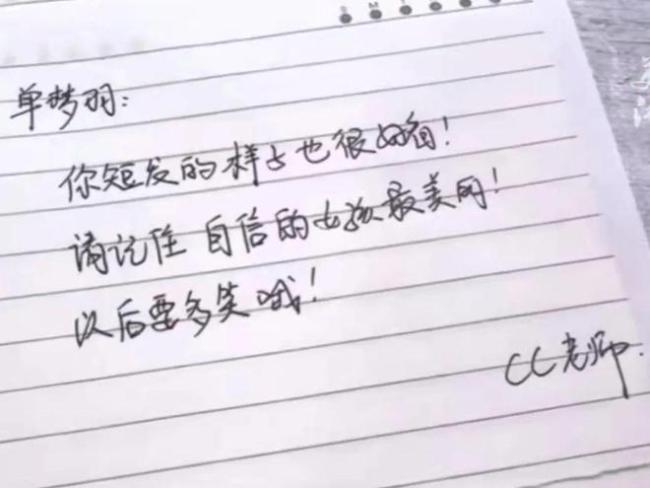 S M T
单梦羽：
你短发的样子也很好看！
请记住 自信的女孩最美丽！
以后要多笑哦！
CC老师.